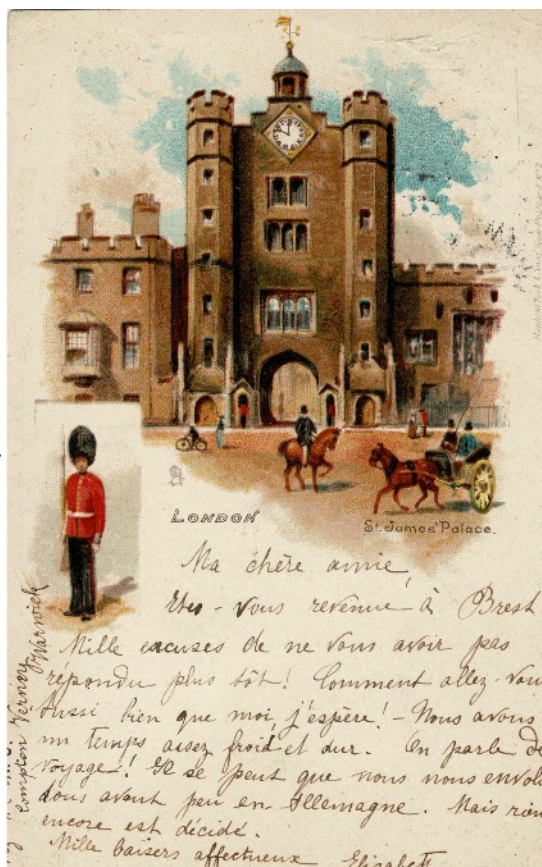 LONDON
St. James' Palace.
Ma chère amie,
Etes-vous revenue à Brest
Mille excuses de ne vous avoir pas
répondu plus tôt! Comment allez-vou
aussi bien que moi, j'espère! - Nous avons
un temps assez froid et dur. On parle de
voyage! Il se peut que nous nous envol
dous avant peu en Allemagne. Mais rien
encore est décidé.
Mille baisers affectueux Elisabeth
Compton Verney
Warwick